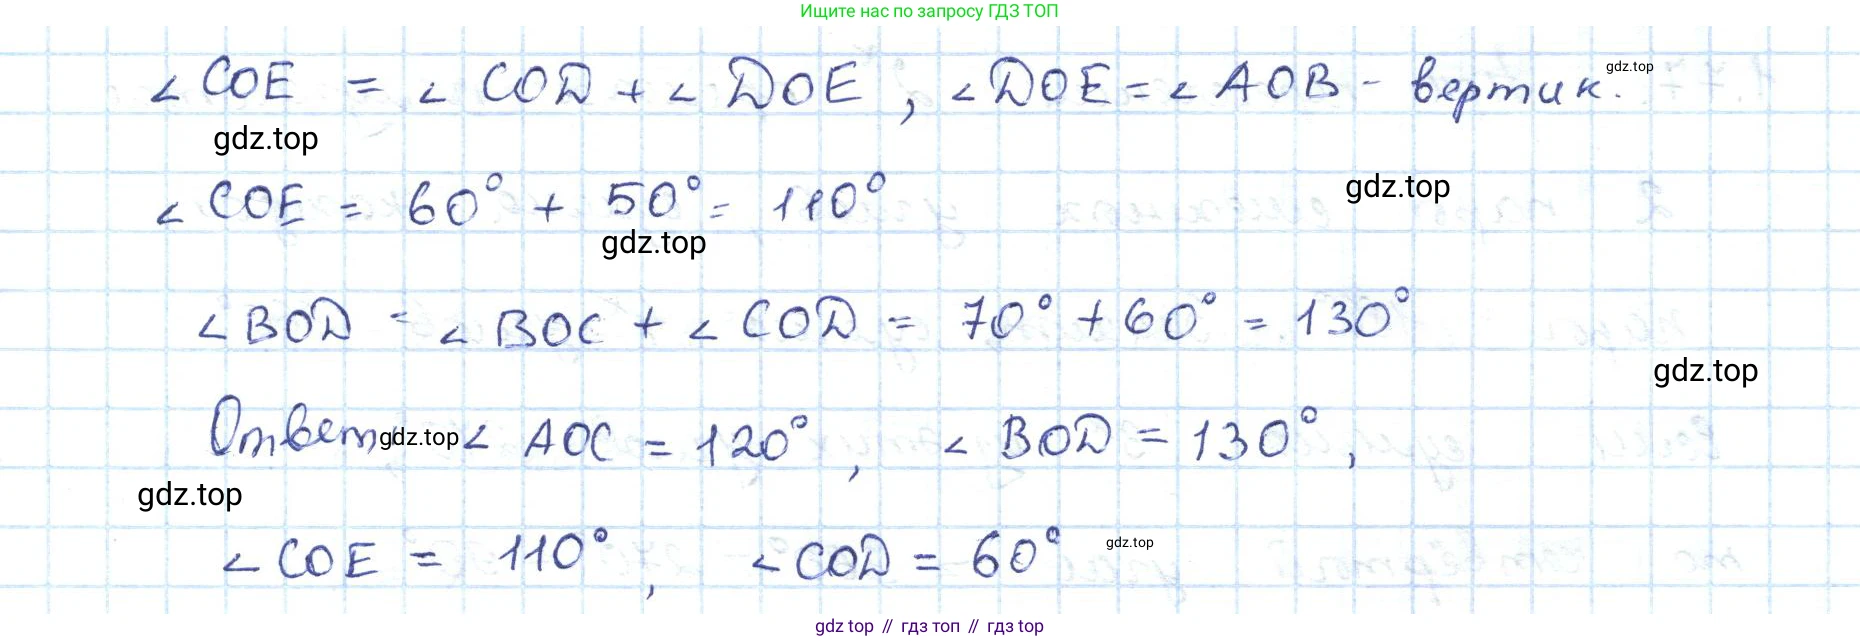 Ищите нас по запросу ГДЗ ТОП
∠COE = ∠COD + ∠DOE, ∠DOE = ∠AOB - вертик.
gdz.top
gdz.top
∠COE = 60° + 50° = 110°
gdz.top
gdz.top
∠BOD = ∠BOC + ∠COD = 70° + 60° = 130°
gdz.top
Ответ: ∠AOC = 120°, ∠BOD = 130°,
gdz.top
gdz.top
∠COE = 110°, ∠COD = 60°
gdz.top
gdz top // гдз топ // gdz top